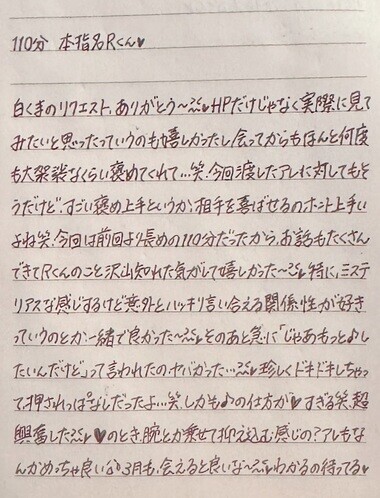 110分 本指名Rくん♥
白くまのリクエスト、ありがとう〜💦♥HPだけじゃなく実際に見て
みたいと思ったっていうのも嬉しかったし、会ってからもほんと何度
も大袈裟なくらい褒めてくれて…笑、今回渡したアレに対してもそ
うだけど、すごい褒め上手というか、相手を喜ばせるのホント上手い
よね笑、今回は前回より長めの110分だったから、お話もたくさん
できてRくんのこと沢山知れた気がして嬉しかった〜💦♥特に、ミステ
リアスな感じするけど意外とハッキリ言い合える関係性が好き
っていうのとか一緒で良かった〜💦♥そのあと急に「じゃあもっと♪し
たいんだけど」って言われたのヤバかった…💦♥珍しくドキドキしちゃ
って押されっぱなしだったよ…笑、しかも♪の仕方が♥すぎる笑、超
興奮した💦♥♥のとき、腕とか乗せて抑え込む感じの?アレもな
んかめっちゃ良い💦3月も、会えると良いな〜💦♥わかるの待ってる♥